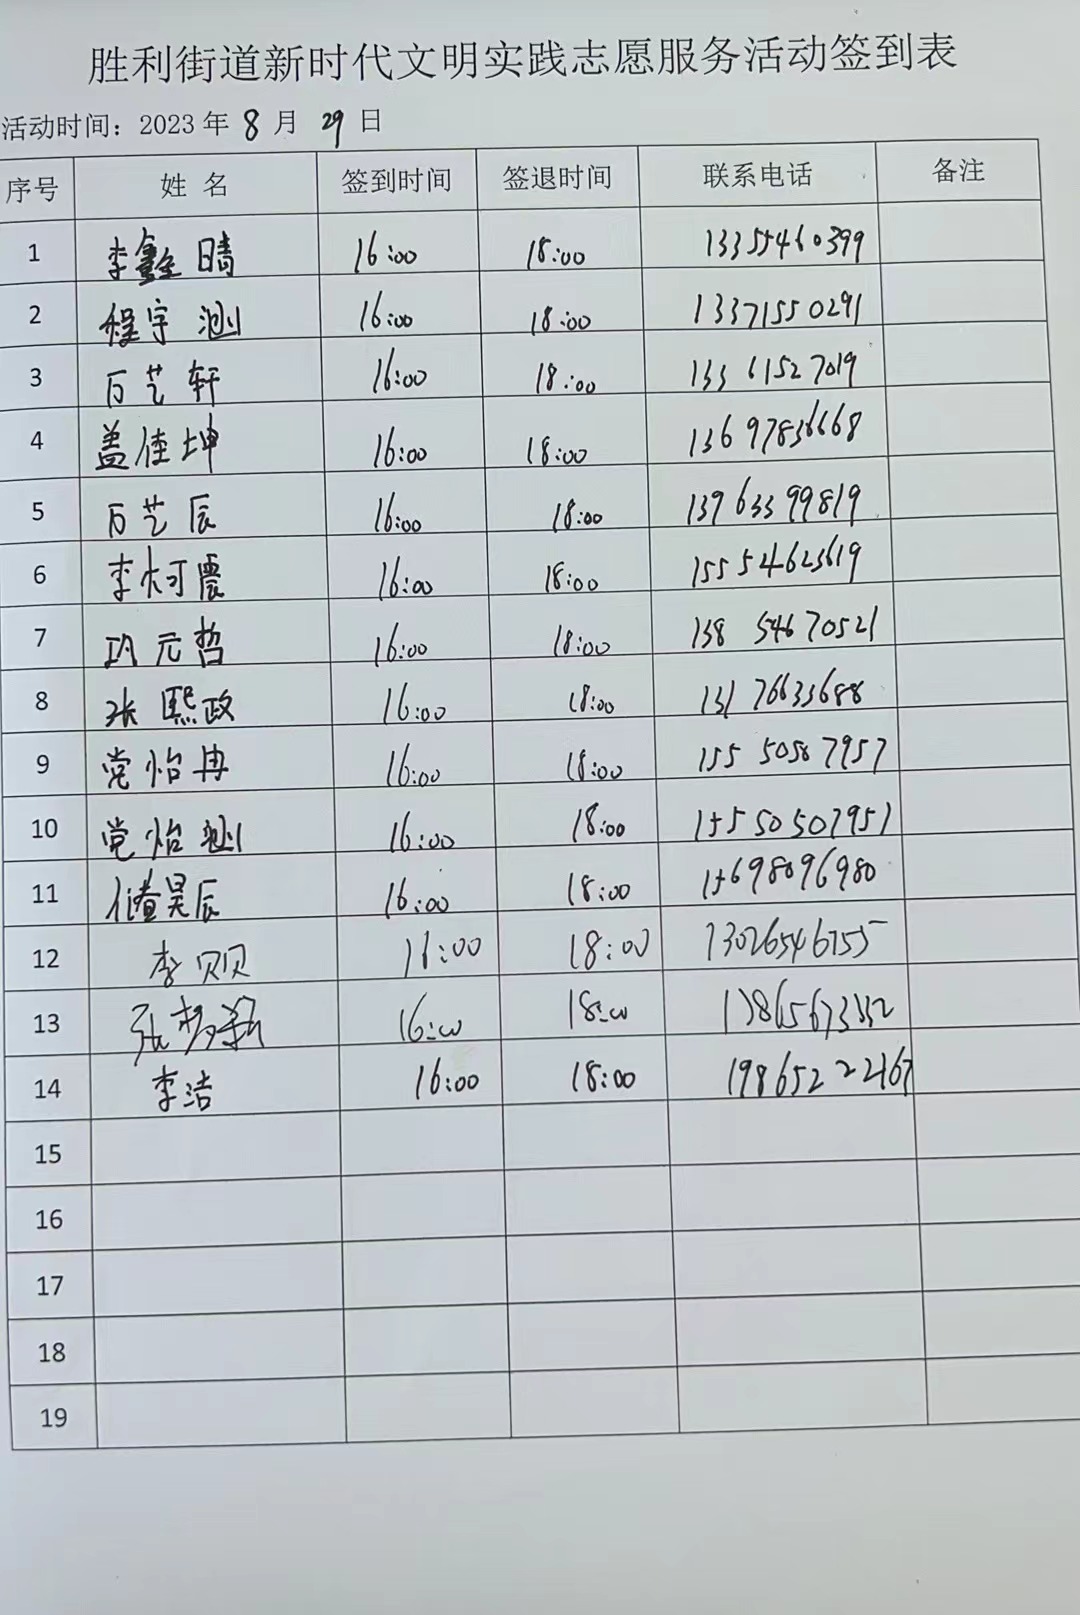 胜利街道新时代文明实践志愿服务活动签到表
活动时间：2023 年 8 月 29 日
序号 姓 名 签到时间 签退时间 联系电话 备注
1 李鑫晴 16:00 18:00 13355460399
2 程宇 16:00 18:00 13371550291
3 万艺轩 16:00 18:00 13361527019
4 盖佳坤 16:00 18:00 13697836668
5 万艺辰 16:00 18:00 13963399819
6 李 16:00 18:00 15554623619
7 巩元哲 16:00 18:00 13854670521
8 张熙政 16:00 18:00 13176633688
9 党怡冉 16:00 18:00 15550507957
10 党怡 16:00 18:00 15550507957
11 昊辰 16:00 18:00 15698096980
12 李贝贝 16:00 18:00 13026546755
13 张 16:00 18:00
14 李洁 16:00 18:00 19865222167
15
16
17
18
19